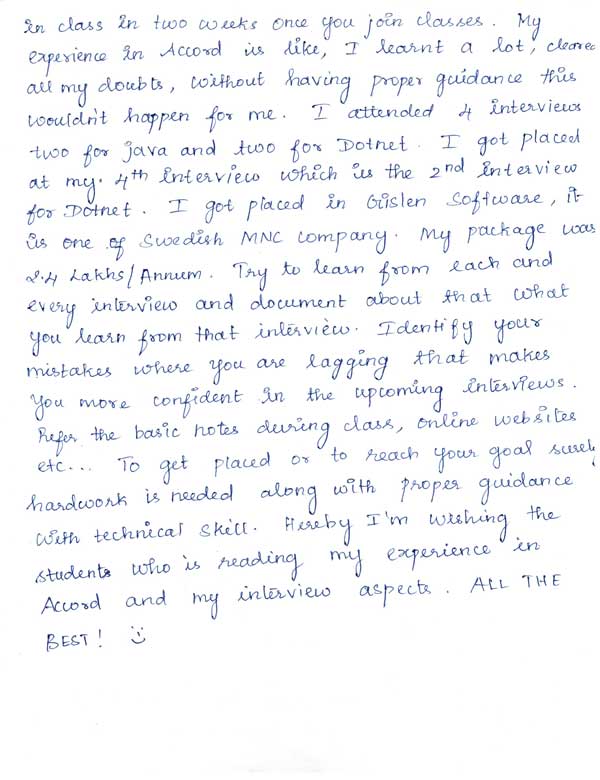 in class in two weeks once you join classes. My
experience in Accord is like, I learnt a lot, cleared
all my doubts, without having proper guidance this
wouldn't happen for me. I attended 4 interviews
two for java and two for Dotnet. I got placed
at my. 4th interview which is the 2nd interview
for Dotnet. I got placed in Gislen Software, it
is one of Swedish MNC company. My package was
2.4 Lakhs/Annum. Try to learn from each and
every interview and document about that what
you learn from that interview. Identify your
mistakes where you are lagging that makes
you more confident in the upcoming interviews.
Refer the basic notes during class, online websites
etc... To get placed or to reach your goal surely
hardwork is needed along with proper guidance
with technical skill. Hereby I'm wishing the
students who is reading my experience in
Accord and my interview aspects. ALL THE
BEST!